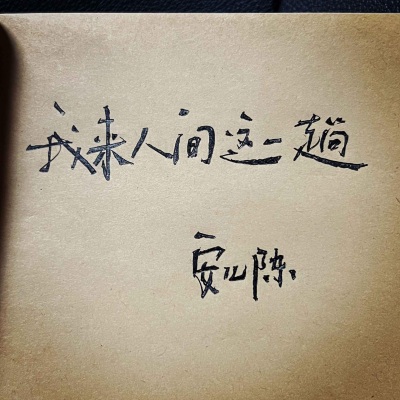 我来人间这一趟
安儿陈